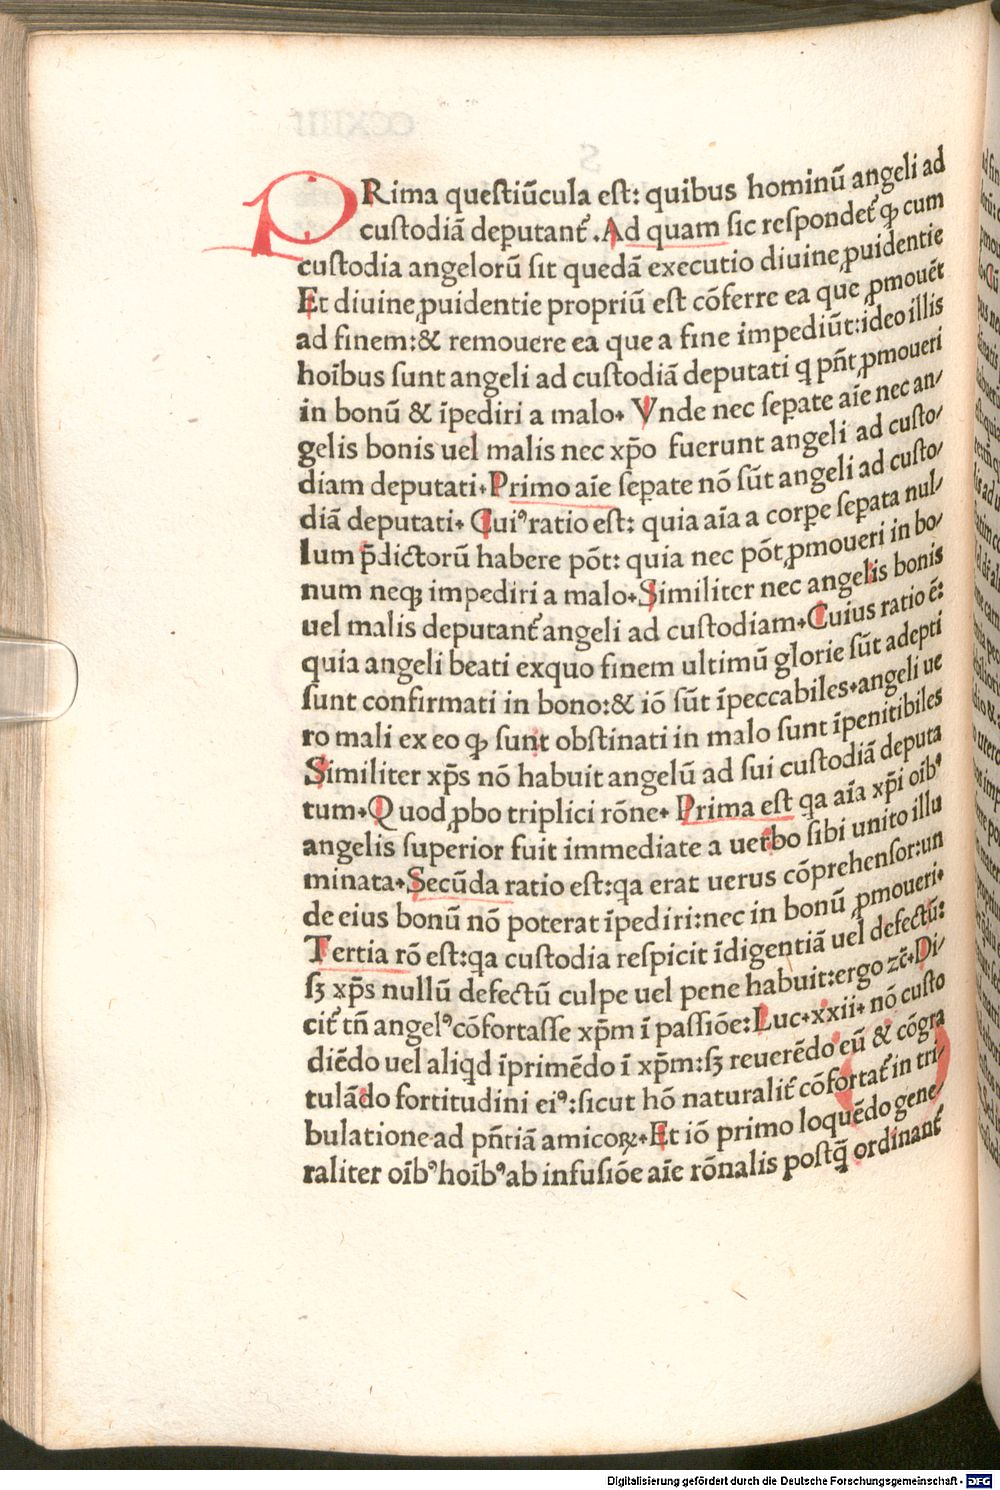 PRima questiũcula est: quibus hominũ angeli ad
custodiã deputant᷑. Ad quam sic respondet᷑ ꝙ cum
custodia angelorũ sit quedã executio diuine ꝓuidentie
Et diuine ꝓuidentie propriũ est cõferre ea que ꝓmouẽt
ad finem: & remouere ea que a fine impediũt: ideo illis
hoĩbus sunt angeli ad custodiã deputati q pñt ꝓmoueri
in bonũ & ĩpediri a malo. Vnde nec seꝑate aĩe nec an/
gelis bonis uel malis nec xp̃o fuerunt angeli ad custo/
diam deputati. Primo aĩe seꝑate nõ sũt angeli ad custo/
diã deputati. Cuiꝰ ratio est: quia aĩa a corꝑe seꝑata nul/
lum p̃dictorũ habere põt: quia nec põt ꝓmoueri in bo/
num neqꝫ impediri a malo. Similiter nec angelis bonis
uel malis deputant᷑ angeli ad custodiam. Cuius ratio ẽ:
quia angeli beati exquo finem ultimũ glorie sũt adepti
sunt confirmati in bono: & iõ sũt ĩpeccabiles. angeli ue
ro mali ex eo ꝙ sunt obstinati in malo sunt ĩpenitibiles
Similiter xp̃s nõ habuit angelũ ad sui custodiã deputa
tum. Quod ꝓbo triplici rõne. Prima est qa aĩa xp̃i oĩbꝰ
angelis superior fuit immediate a uerbo sibi unito illu
minata. Secũda ratio est: qa erat uerus cõprehensor: un
de eius bonũ nõ poterat ĩpediri: nec in bonũ ꝓmoueri.
Tertia rõ est: qa custodia respicit ĩdigentiã uel defectũ:
sꝫ xp̃s nullũ defectũ culpe uel pene habuit: ergo zc̃. Di/
cit᷑ tñ angelꝰ cõfortasse xp̃m ĩ passiõe: Luc. xxii. nõ custo
diẽdo uel aliqd ĩprimẽdo ĩ xp̃m: sꝫ reuerẽdo eũ & cõgra
tulãdo fortitudini eiꝰ: sicut hõ naturalit᷑ cõfortat᷑ in tri/
bulatione ad pñtiã amicoꝝ. Et iõ primo loquẽdo gene/
raliter oĩbꝰ hoĩbꝰ ab infusiõe aĩe rõnalis postq̃ ordinant᷑
Digitalisierung gefördert durch die Deutsche Forschungsgemeinschaft - DFG